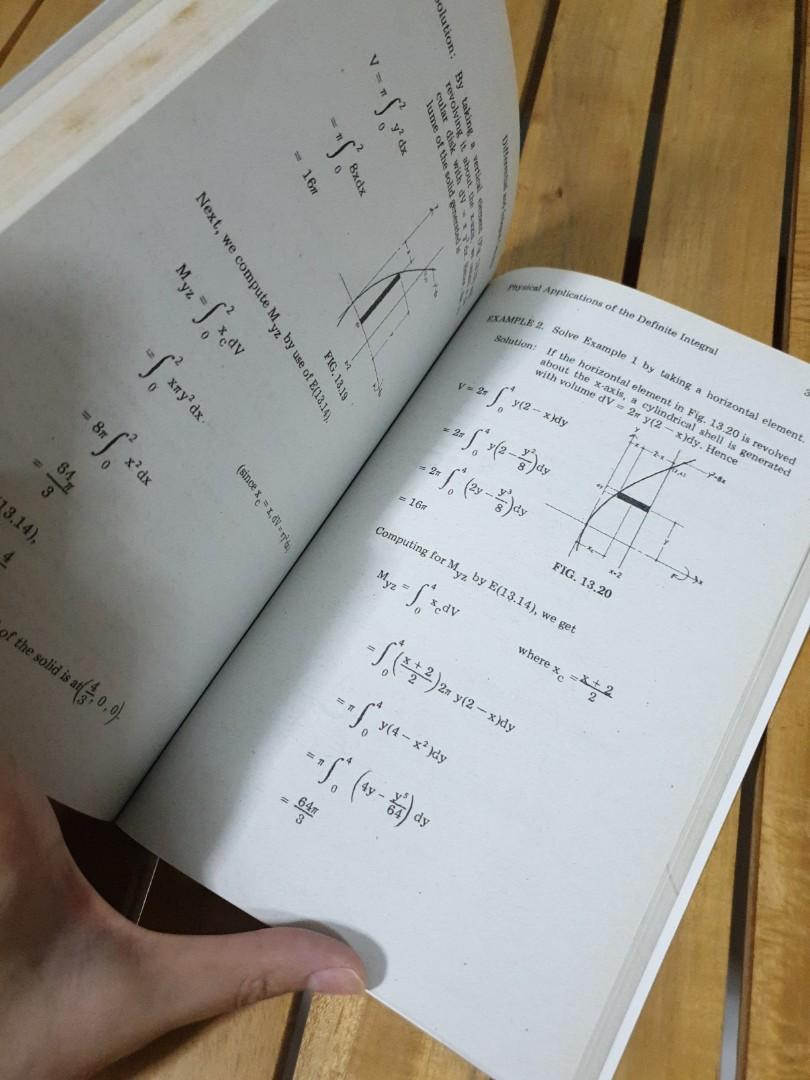 Solution: By taking a vertical element
revolving it about the x-axis,
cular disk with dV =
lume of the solid generated is
V = π ∫₀² y² dx
= π ∫₀² 8xdx
= 16π
FIG. 13.19
Next, we compute M_yz by use of E(13.14),
M_yz = ∫₀² x_c dV
= ∫₀² xπy² dx
(since x_c = x, dV = πy²dx)
= 8π ∫₀² x² dx
= 64π/3
13.14),
4
of the solid is at (4/3, 0, 0).
Physical Applications of the Definite Integral
3
EXAMPLE 2. Solve Example 1 by taking a horizontal element.
Solution: If the horizontal element in Fig. 13.20 is revolved
about the x-axis, a cylindrical shell is generated
with volume dV = 2π y(2 − x)dy. Hence
V = 2π ∫₀⁴ y(2 − x)dy
= 2π ∫₀⁴ y(2 − y²/8)dy
= 2π ∫₀⁴ (2y − y³/8)dy
= 16π
FIG. 13.20
Computing for M_yz by E(13.14), we get
M_yz = ∫₀⁴ x_c dV
where x_c = x + 2/2
= ∫₀⁴ (x + 2/2) 2π y(2 − x)dy
= π ∫₀⁴ y(4 − x²)dy
= π ∫₀⁴ (4y − y⁵/64) dy
= 64π/3